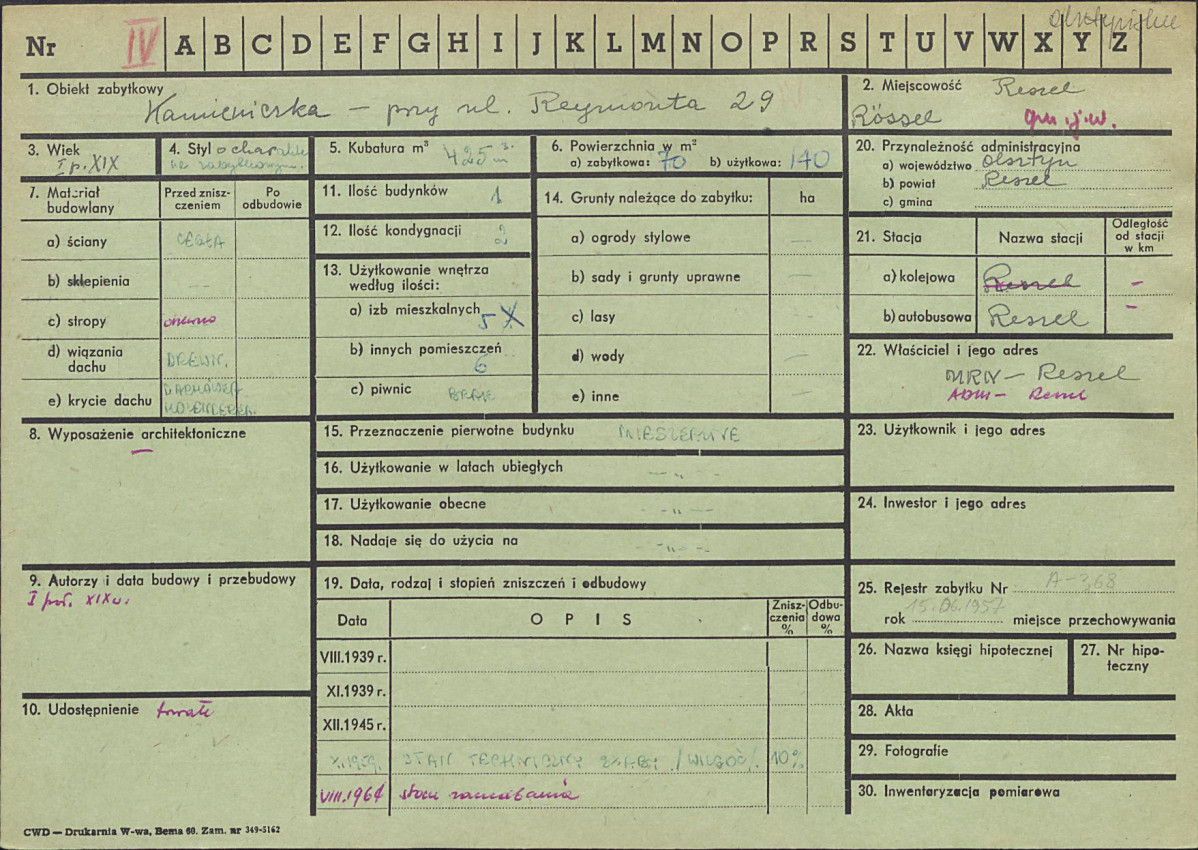 olsztyńskie
Nr IV A B C D E F G H I J K L M N O P R S T U V W X Y Z
1. Obiekt zabytkowy
Kamieniczka – przy ul. Reymonta 29
2. Miejscowość Reszel
Rössel gm. j.w.
3. Wiek
I p. XIX
4. Styl o charakte
rze zabytkowym.
5. Kubatura m³ 425 m³
6. Powierzchnia w m²
a) zabytkowa: 70 b) użytkowa: 140
20. Przynależność administracyjna
a) województwo olsztyn
b) powiat Reszel
c) gmina
7. Materiał budowlany
Przed zniszczeniem
Po odbudowie
a) ściany CEGŁA
b) sklepienia --
c) stropy drewno
d) wiązania dachu DREWN.
e) krycie dachu DACHÓWKA HOLENDERK.
11. Ilość budynków 1
12. Ilość kondygnacji 2
13. Użytkowanie wnętrza
według ilości:
a) izb mieszkalnych 5
b) innych pomieszczeń 6
c) piwnic BRAK
14. Grunty należące do zabytku: ha
a) ogrody stylowe —
b) sady i grunty uprawne —
c) lasy —
d) wody —
e) inne —
21. Stacja
Nazwa stacji
Odległość od stacji w km
a) kolejowa Reszel –
b) autobusowa Reszel –
22. Właściciel i jego adres
MRN – Reszel
ADM – Reszel
8. Wyposażenie architektoniczne
—
15. Przeznaczenie pierwotne budynku MIESZKALNE
16. Użytkowanie w latach ubiegłych -„-
17. Użytkowanie obecne -„-
18. Nadaje się do użycia na -„-
23. Użytkownik i jego adres
24. Inwestor i jego adres
9. Autorzy i data budowy i przebudowy
I poł. XIX w.
19. Data, rodzaj i stopień zniszczeń i odbudowy
Data
OPIS
Zniszczenia %
Odbudowa %
VIII.1939 r.
XI.1939 r.
XII.1945 r.
X.1959. STAN TECHNICZNY SŁABY /WILGOĆ/. 10%
VIII.1964 stan zaniedbania
25. Rejestr zabytku Nr A-368
15.06.1957
rok miejsce przechowywania
26. Nazwa księgi hipotecznej
27. Nr hipoteczny
10. Udostępnienie trwałe
28. Akta
29. Fotografie
30. Inwentaryzacja pomiarowa
CWD — Drukarnia W-wa, Bema 60. Zam. nr 349-5162